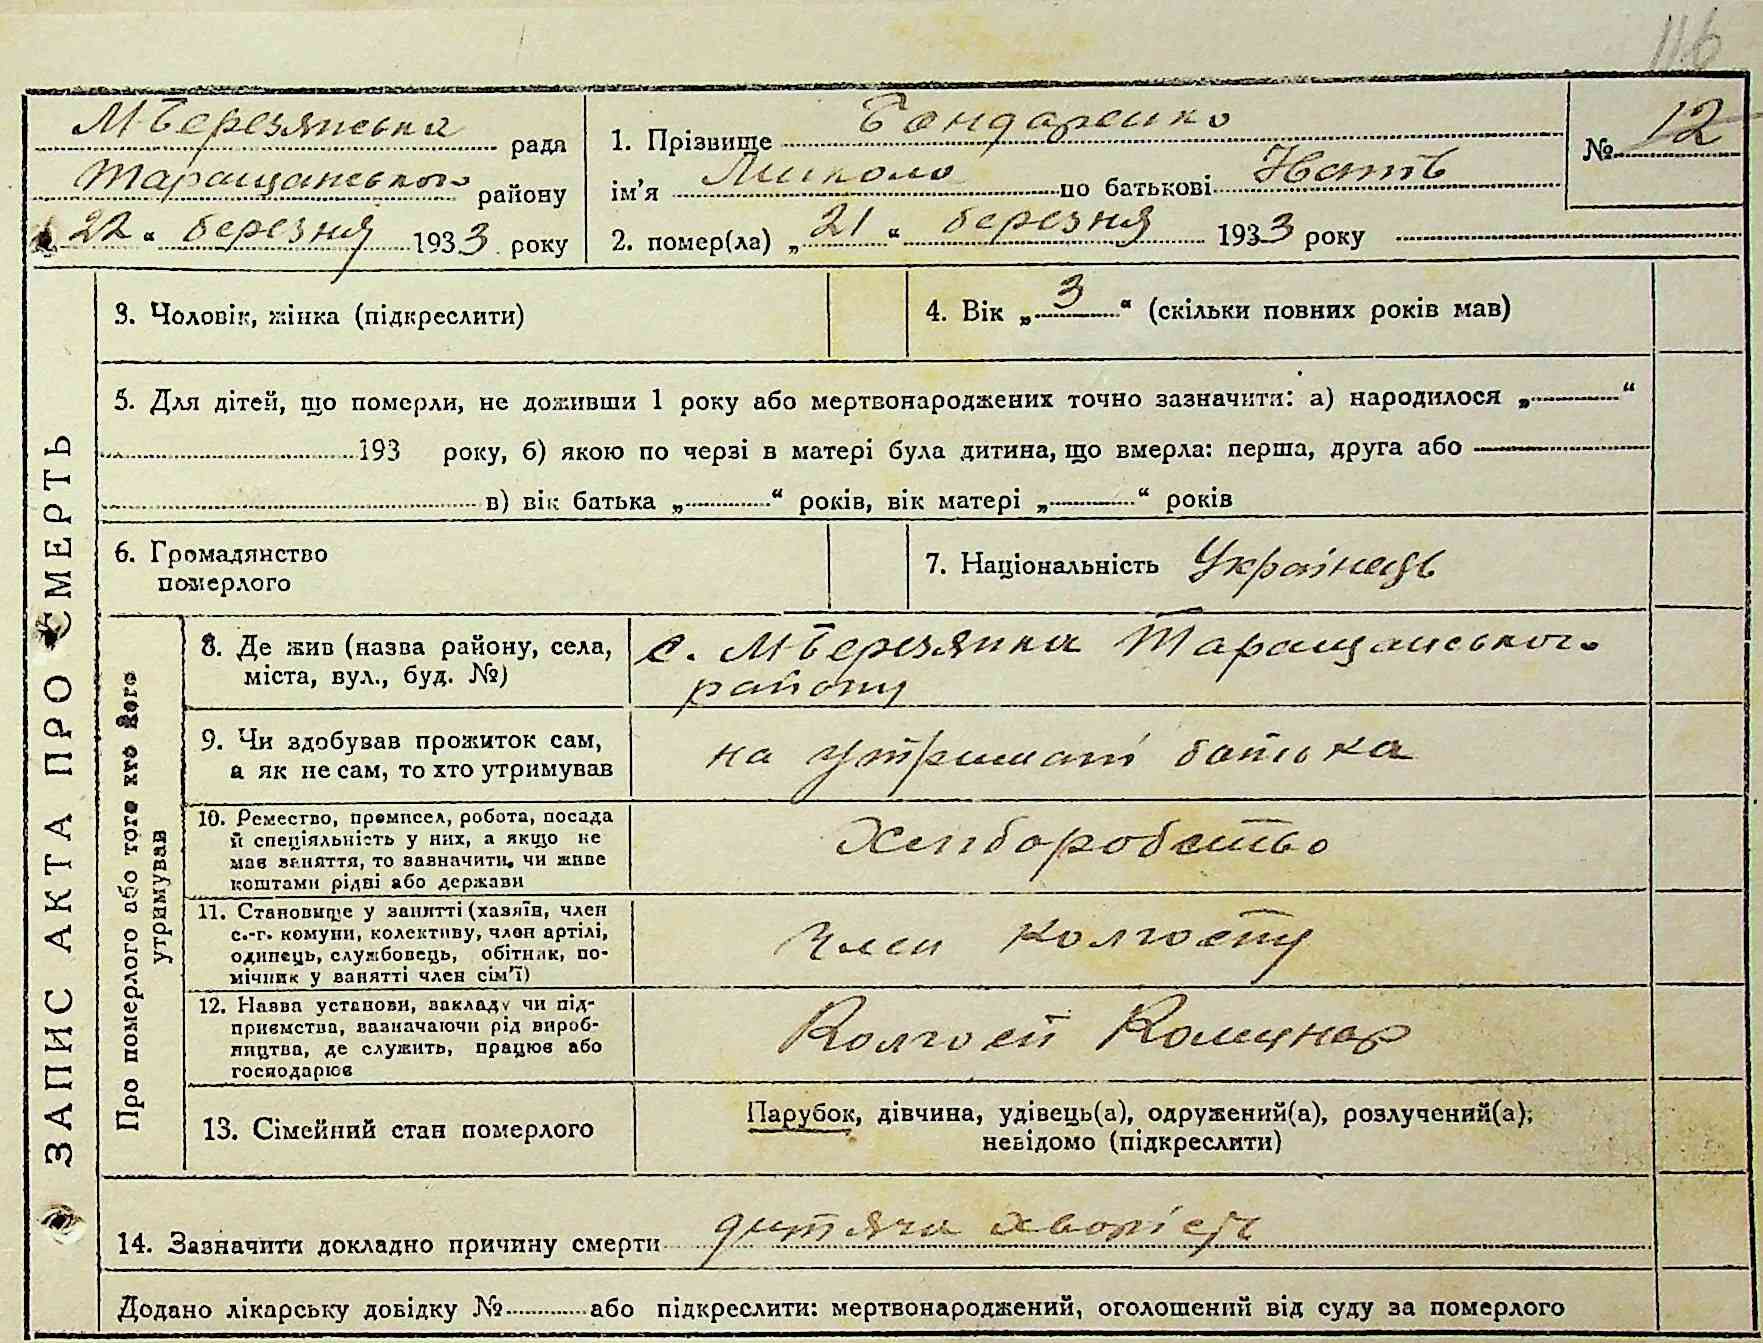 116
М Березянська рада
Таращанського району
"22" березня 1933 року
1. Прізвище Бондаренко
ім'я Микола по батькові Нать
2. помер(ла) „21" березня 1933 року
№ 12
ЗАПИС АКТА ПРО СМЕРТЬ
3. Чоловік, жінка (підкреслити)
4. Вік „3" (скільки повних років мав)
5. Для дітей, що померли, не доживши 1 року або мертвонароджених точно зазначити: а) народилося „ "
193 року, б) якою по черзі в матері була дитина, що вмерла: перша, друга або
в) вік батька „ " років, вік матері „ " років
6. Громадянство
померлого
7. Національність Українець
Про померлого або того хто його
утримував
8. Де жив (назва району, села,
міста, вул., буд. №)
с. М Березянка Таращанського
району
9. Чи здобував прожиток сам,
а як не сам, то хто утримував
на утримані батька
10. Ремество, промисел, робота, посада
й спеціяльність у них, а якщо не
має заняття, то зазначити, чи живе
коштами рідні або держави
Хліборобство
11. Становище у занятті (хазяїн, член
с.-г. комуни, колективу, член артілі,
одинець, службовець, обітник, по-
мічник у занятті член сім'ї)
Член колгоспу
12. Назва установи, закладу чи під-
приємства, зазначаючи рід вироб-
ництва, де служить, працює або
господарює
Колгосп Комунар
13. Сімейний стан померлого
Парубок, дівчина, удівець(а), одружений(а), розлучений(а);
невідомо (підкреслити)
14. Зазначити докладно причину смерти дитяча хворість
Додано лікарську довідку № або підкреслити: мертвонароджений, оголошений від суду за померлого